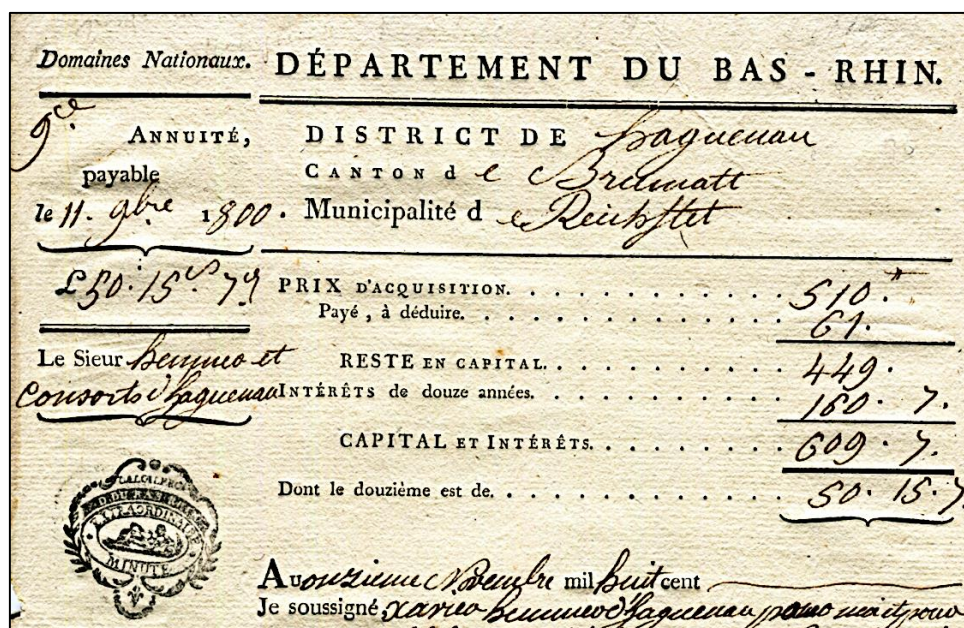 Domaines Nationaux.
DÉPARTEMENT DU BAS - RHIN.
9.ce ANNUITÉ,
payable
le 11. 9bre. 1800.
£ 50. 15s. 7d
Le Sieur
consorts d'haguenau
DISTRICT DE haguenau
CANTON de Brumatt
Municipalité de Reichstet
PRIX D'ACQUISITION. 510.
Payé, à déduire. 61.
RESTE EN CAPITAL. 449.
INTÉRÊTS de douze années. 160. 7.
CAPITAL ET INTÉRÊTS. 609. 7.
Dont le douzième est de. 50. 15. 7
EXTRAORDINAIRE
MINUTE
Au onzieme Novembre mil huit cent
Je soussigné xavier d'haguenau pour moi et pour